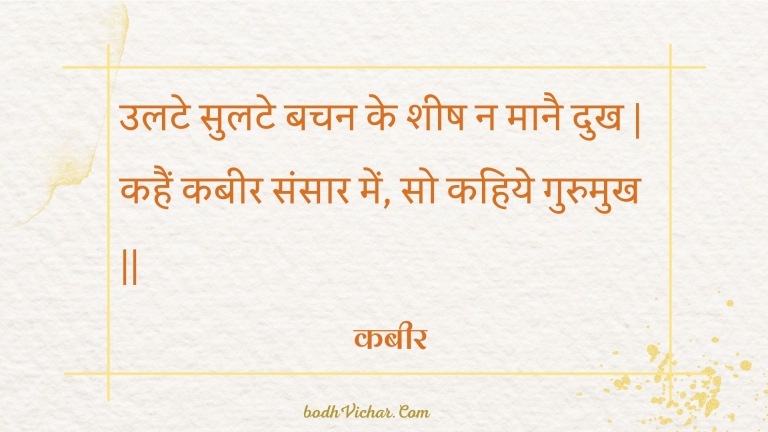 उलटे सुलटे बचन के शीष न मानै दुख |
कहैं कबीर संसार में, सो कहिये गुरुमुख
||
कबीर
bodhVichar.Com